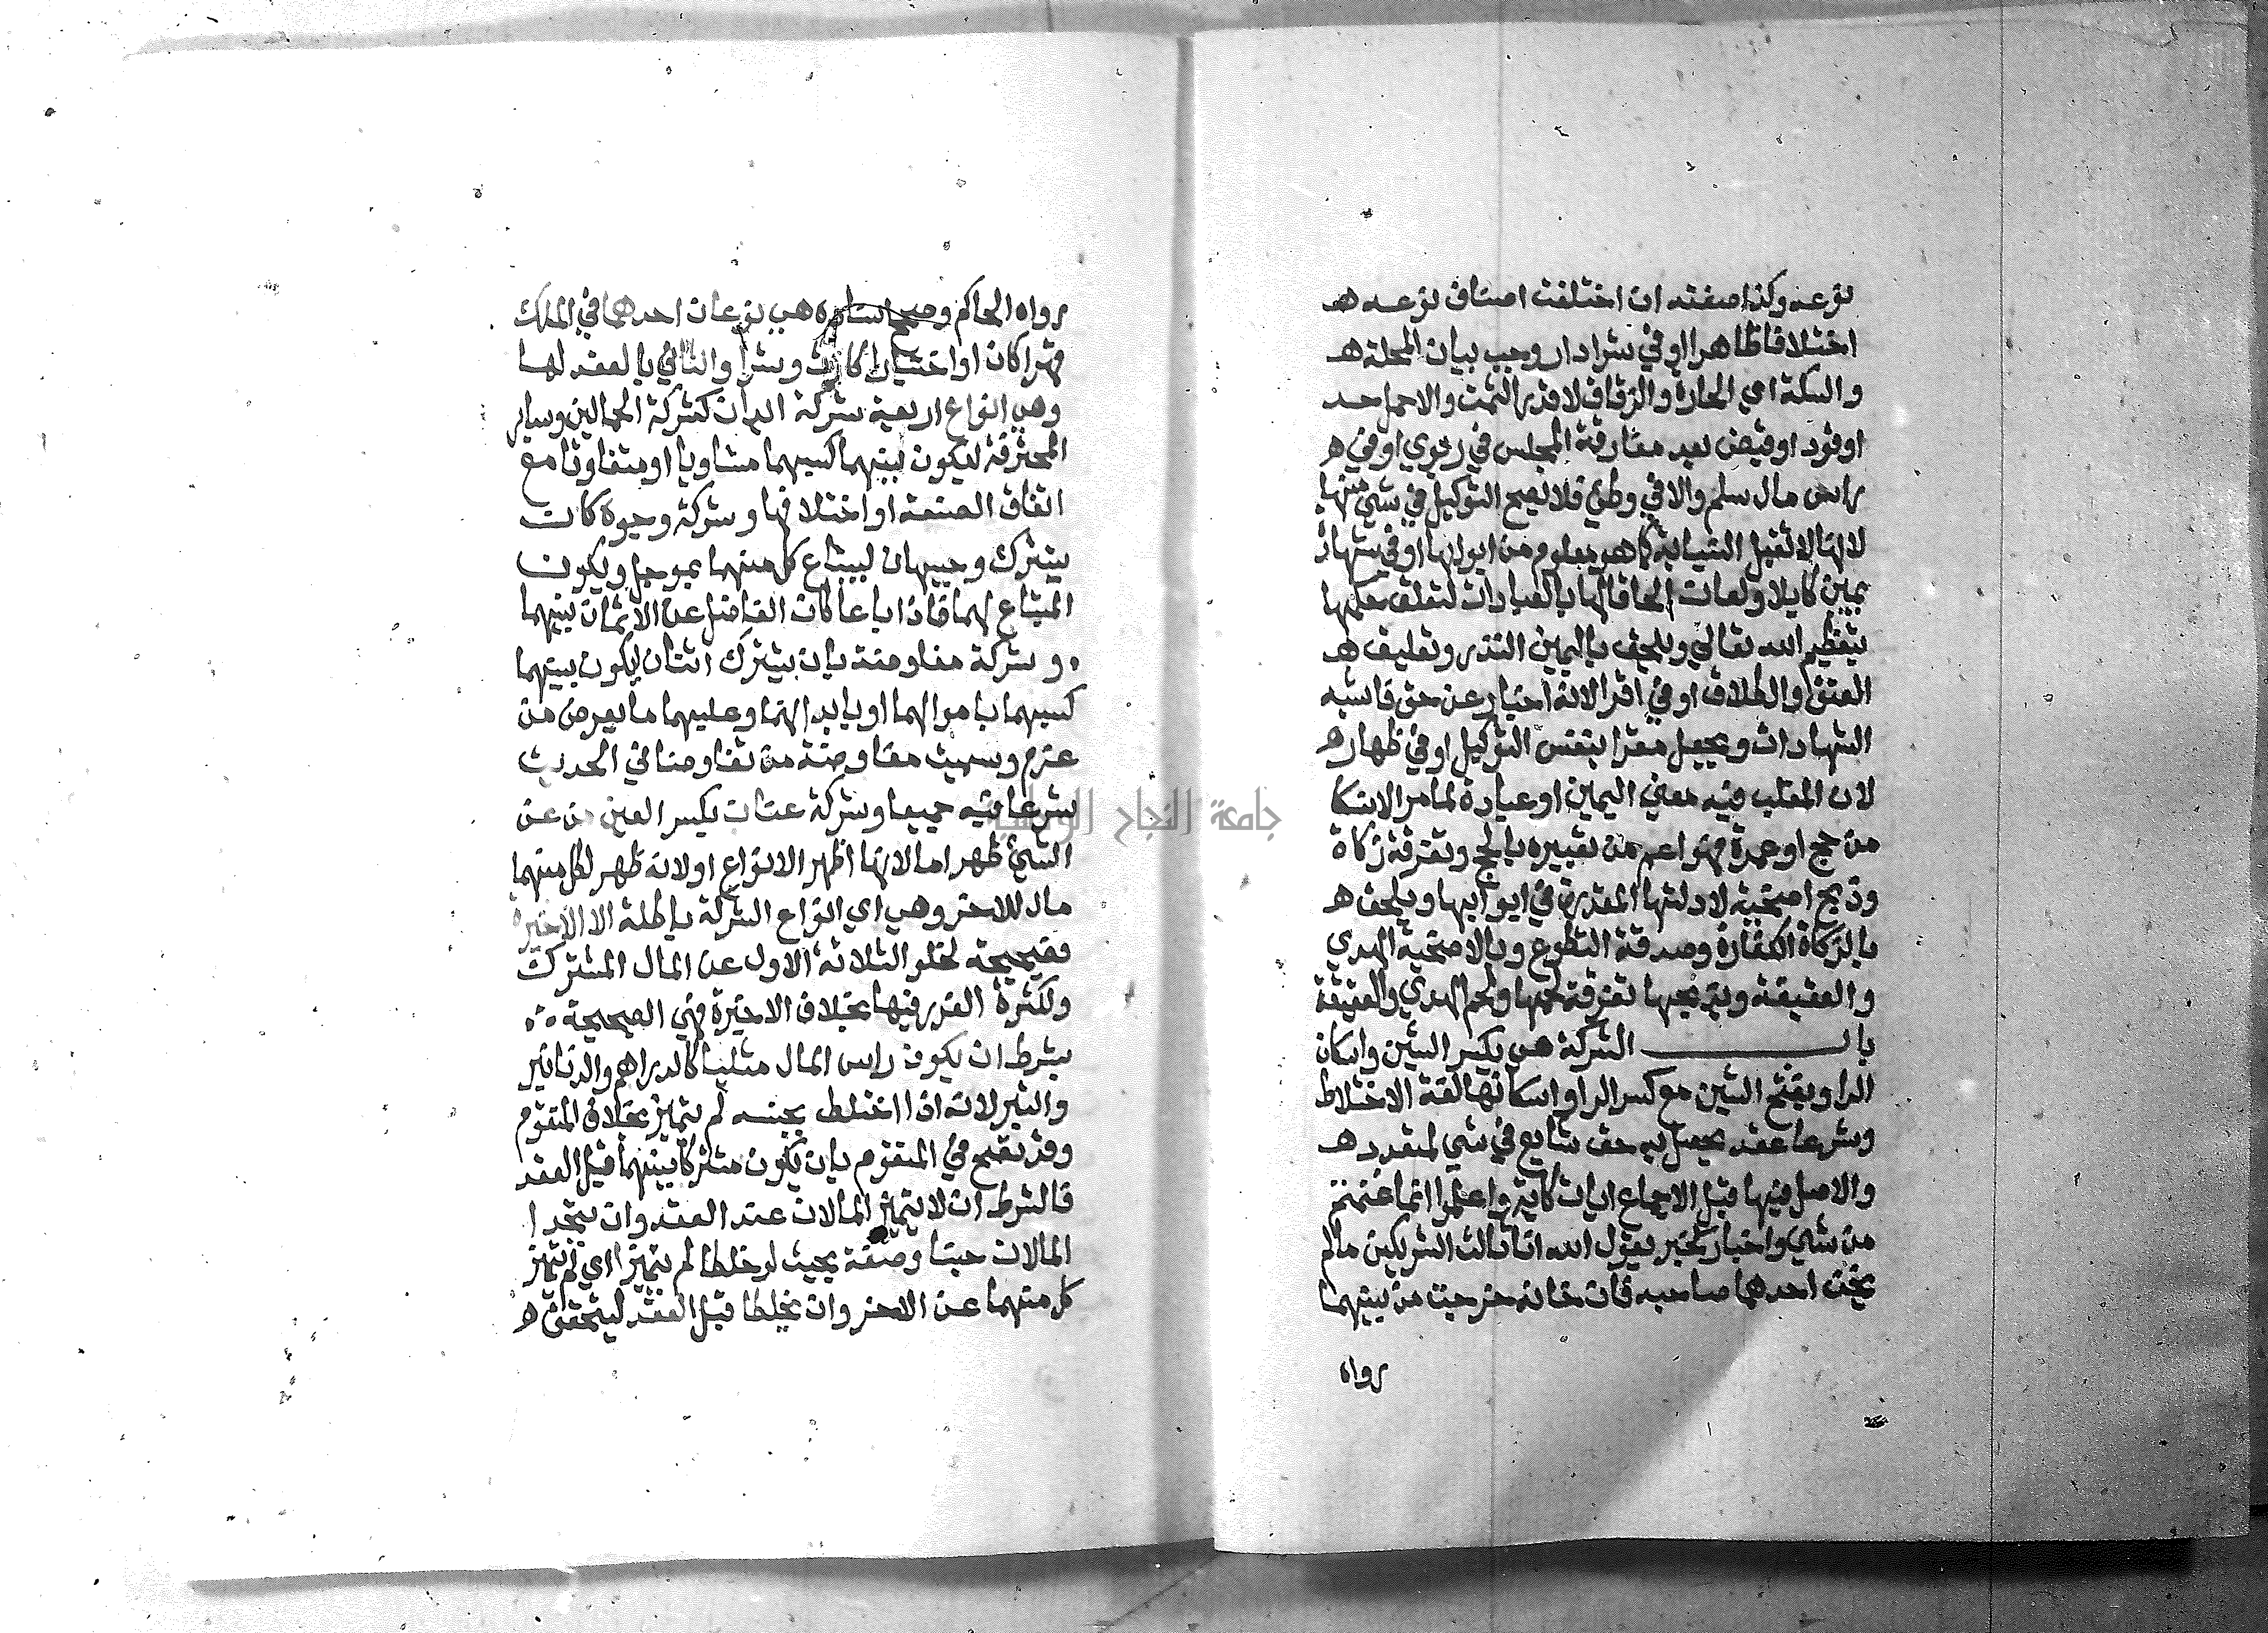 نوعه وكذا صفته ان اختلفت اصناف نوعه هـ
اختلافا ظاهرا او في شرا دار وجب بيان المحلة هـ
والسكة اي الحارة والزقاق لا قدر الثمن والا حمل حد
او قود او قبض بعد مفارقة المجلس في ربوي او في هـ
راس مال سلم والا في وطئ فلا يصح التوكيل في شي منها
لانها لا تقبل النيابة كما هو معلوم من ابوابها او في شهاد
يمين كايلا ولعان الحاقا لها بالعبادات لتعلق حكمها
بتعظيم الله تعالي ويلحق باليمين النذر وتعليق هـ
العتق والطلاق او في اقرار لانه اخبار عن حق فاشبه
الشهادات ويجعل مقرا بنفس التوكيل او في ظهار هـ
لان المغلب فيه معني اليمين او عبادة لما مر الا نسكا
من حج او عمرة فهو اعم من تعبيره بالحج وتفرقة زكاة
وذبح اضحية لادلتها المقررة في ابوابها ويلحق هـ
بالزكاة الكفارة وصدقة التطوع وبالاضحية الهدي
والعقيقة وبذبحها تفرقة لحمها ولحم الهدي والعقيقة
باب الشركة هي بكسر الشين واسكان
الرا وبفتح الشين مع كسر الرا واسكانها لغة الاختلاط
وشرعا عقد يحصل به حق شايع في شي لمتعدد هـ
والاصل فيها قبل الاجماع ايات كاية واعلموا انما غنمتم
من شي واخبار كخبر يقول الله انا ثالث الشريكين ما لم
يخن احدهما صاحبه فان خانه خرجت من بينهما
رواه
رواه الحاكم وصحح اسناده هي نوعان احدهما في الملك
قهرا كان او اختيارا كارث وشرا والثاني بالعقد لها
وهي انواع اربعة شركة ابدان كشركة الحمالين وساير
المحترفة ليكون بينهما كسبهما متساويا او متفاوتا مع
اتفاق الصنعة او اختلافها وشركة وجوه كان
يشترك وجيهان ليبتاع كل منهما بموجل ويكون
المبتاع لهما فاذا باعا كان الفاضل عن الاثمان بينهما
وشركة مفاوضة بان يشترك اثنان ليكون بينهما
كسبهما باموالهما او بابدانهما وعليهما ما يعرض من
غرم وسميت مفاوضة من تفاوضا في الحديث
شرعا فيه جميعا وشركة عنان بكسر العين من عن
الشي ظهر اما لانها اظهر الانواع او لانه ظهر لكل منهما
مال للاخر وهي اي انواع الشركة باطلة الا الاخيرة
فصحيحة لخلو الثلاثة الاول عن المال المشترك
ولكثرة الغرر فيها بخلاف الاخيرة فهي الصحيحة
بشرط ان يكون راس المال مثليا كالدراهم والدنانير
والتبر لانه اذا اختلط بجنسه لم يتميز بخلاف المتقوم
وقد تصح في المتقوم بان يكون مشتركا بينهما قبل العقد
فالشرط ان لا يتميز المالان عند العقد وان يتحدا
المالان جنسا وصفة بحيث لو خلطا لم يتميزا اي لم يتميز
كل منهما عن الاخر وان يخلطا قبل العقد ليتحقق هـ
جامعة النجاح الوطنية